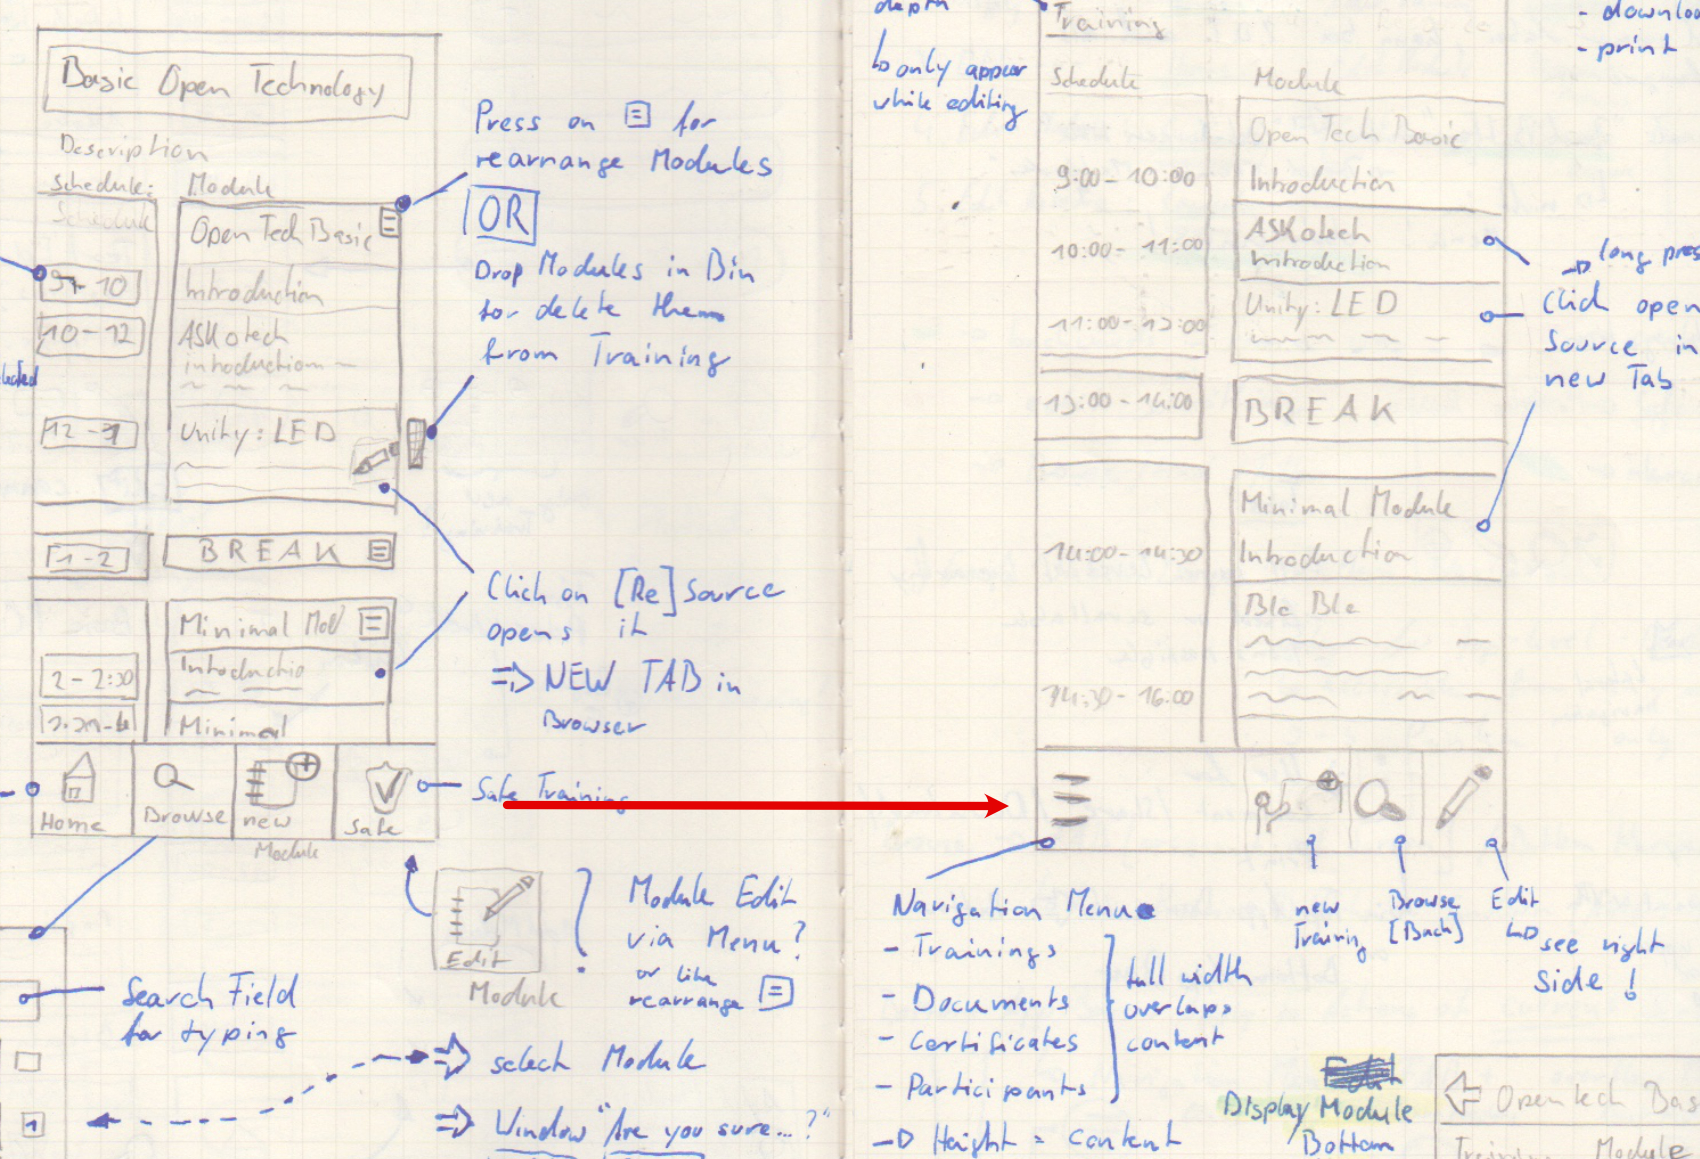 Basic Open Technology
Description
Schedule:
Module
Schedule
Open Tech Basic
9-10
Introduction
10-12
ASKotech
introduction
12-1
Unity: LED
1-2
BREAK
Minimal Mod
Introductio
2-2:30
Minimal
Home
Browse
new
Module
Safe
Press on for
rearrange Modules
OR
Drop Modules in Bin
for delete them
from Training
Click on [Re]Source
opens it
⇒ NEW TAB in
Browser
Safe Training
Edit
Module
Module Edit
via Menu?
or like
rearrange
Search Field
for typing
⇒ select Module
1
⇒ Window "Are you sure...?"
depth
↳ only appear
while editing
Training
Schedule
Module
Open Tech Basic
9:00 - 10:00
Introduction
10:00 - 11:00
ASKotech
Introduction
11:00 - 13:00
Unity: LED
13:00 - 14:00
BREAK
Minimal Module
14:00 - 14:30
Introduction
Bla Bla
14:30 - 16:00
- print
→ long pres
Click open
Source in
new Tab
Navigation Menu
- Trainings
- Documents
- Certificates
- Participants
full width
overlaps
content
→ Height = content
new
Training
Browse
[Back]
Edit
↳ see right
Side!
Display Module
Bottom
← Opentech Bas
Training
Module